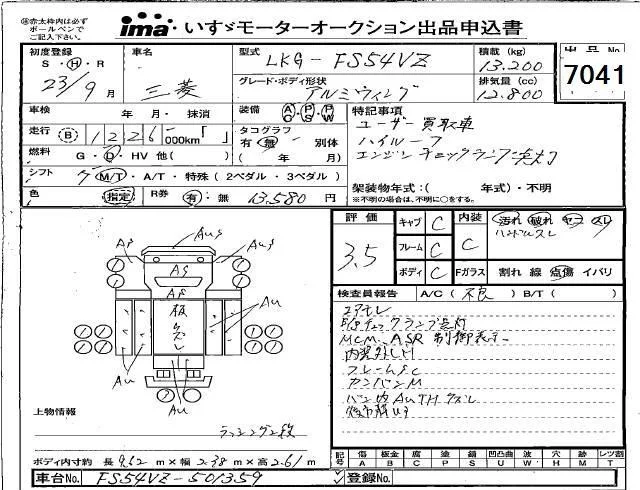 ※赤太枠内は必ず
ボールペンで
ご記入下さい。
ima いすゞモーターオークション出品申込書
初度登録 車名 型式 LKG-FS54VZ 積載 (kg) 13.200 出品No
S・H・R 23/9 月 三菱 グレード・ボディ形状 アルミウィング 排気量 (cc) 12.800 7041
車検 年 月・ 抹消 装備 AC PS PW 特記事項
走行 B 1226 000km タコグラフ 有 無 別体 ( 年 月) ユーザー買取車
ハイルーフ
燃料 G・D・HV 他( ) エンジンチェックランプ点灯
シフト 7 M/T・A/T・特殊 (2ペダル・3ペダル) 架装物年式:( 年式)・不明
色 指定 R券 有:無 13.580 円 ※不明の場合は、不明に○をする。
評価 キャブ C 内装 汚れ 破れ ヤケ スレ
3.5 フレーム C C ハンドルスレ
ボディ C Fガラス 割れ 線 点傷 イバリ
検査員報告 A/C( 不良 ) B/T( )
エアモレ
MCM、ASR 制御表示
フレームSC
カンバンM
Aug Aug
AS
AS
AS
板
Au
Au
Au
上物情報 ラッシング2段
ボディ内寸約 長 9.62 m×幅 2.38 m×高 2.61 m
記号 傷 板金 腐 塗 錆 凹凸曲 波 穴 跡 レツ割
A B C P S U W H M T
車台No. FS54VZ-501359 登録No.